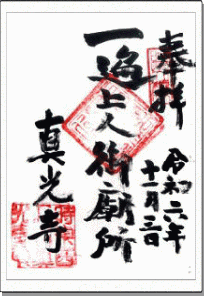 奉拝
令和六年
十一月三日
一遍上人御廟所
真光寺